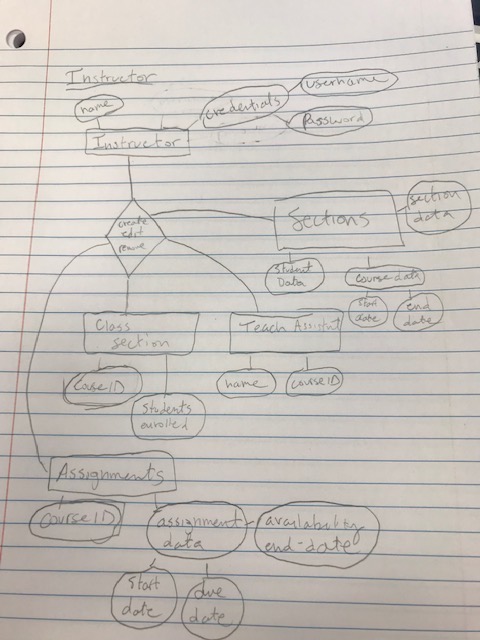 Instructor
name
credentials
username
Password
Instructor
create
edit
Sections
section
data
Student
Data
course data
Start
date
end
date
Class
section
Teach Assistant
Course ID
Students
enrolled
name
courseID
Assignments
Course ID
assignment
data
availability
end-date
Start
date
due
date